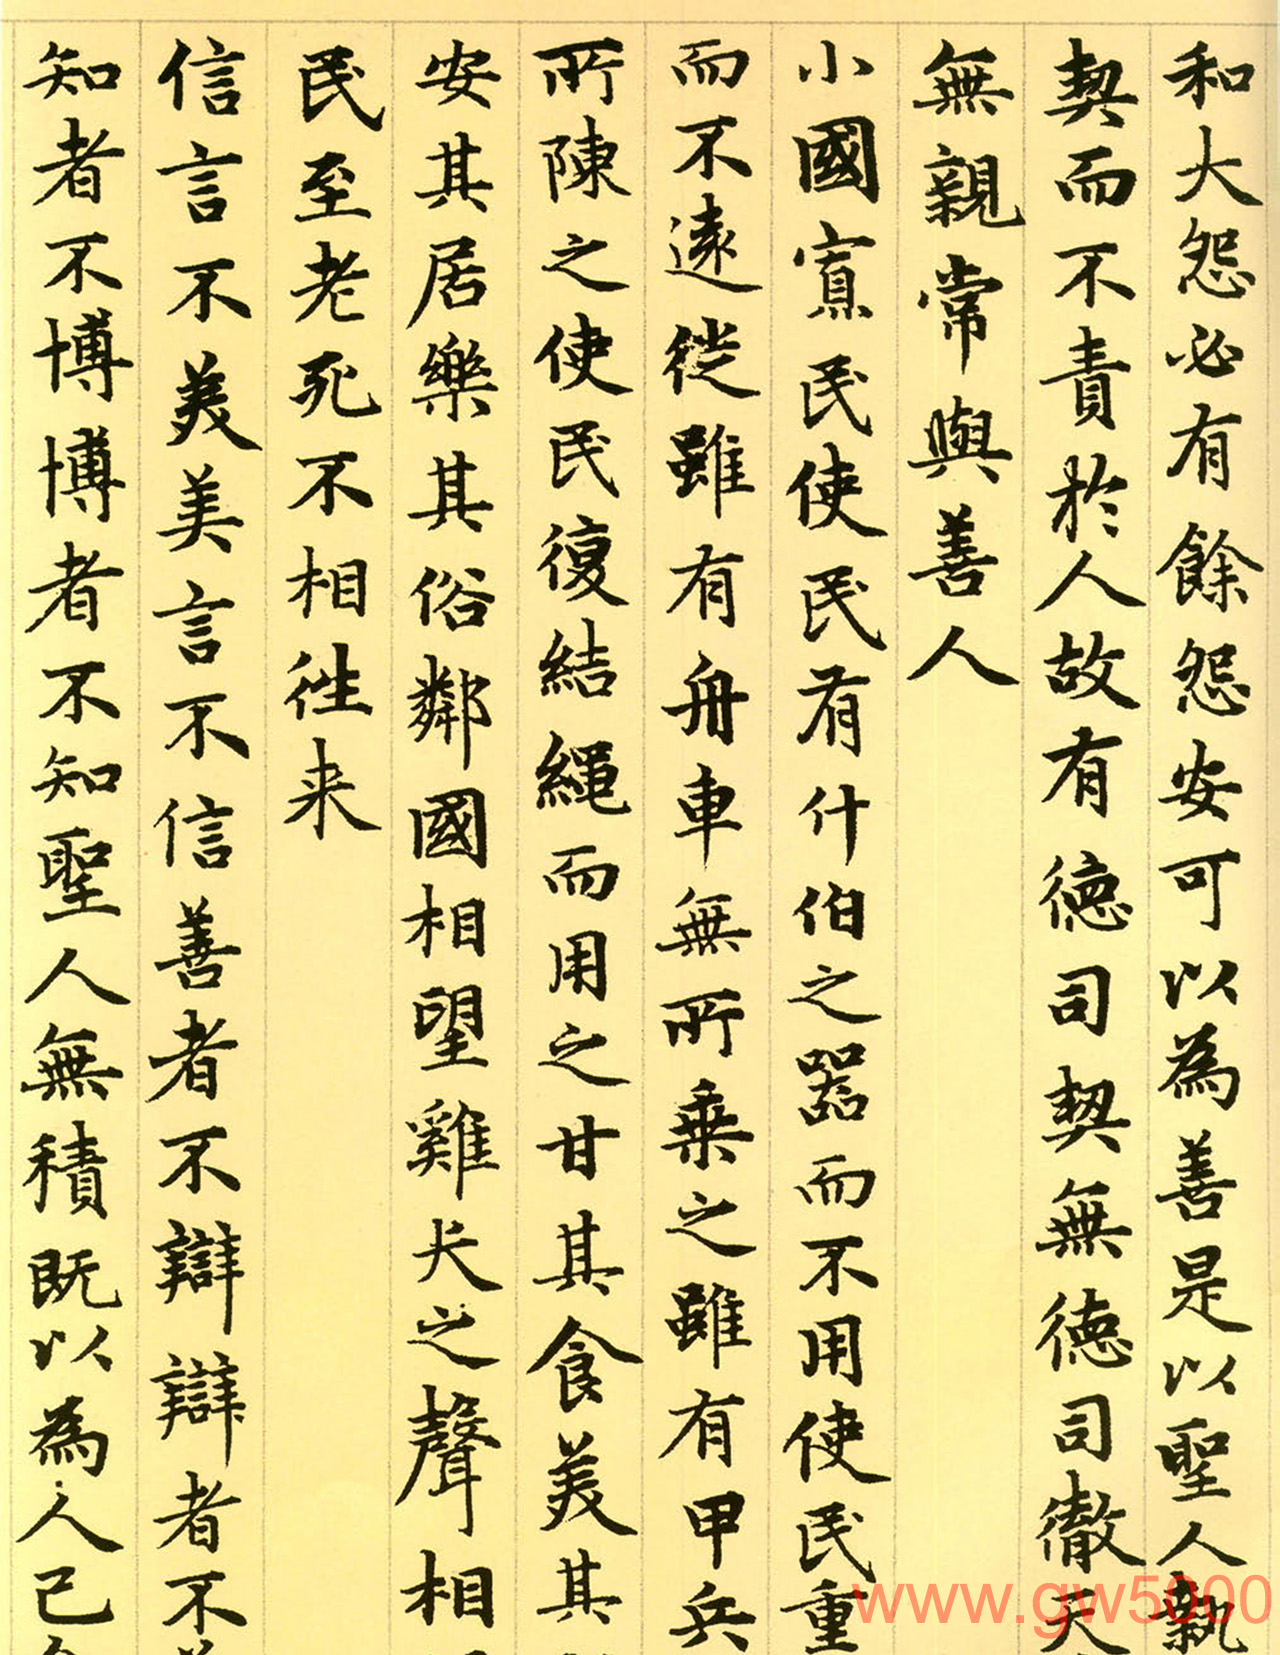 和大怨必有餘怨安可以為善是以聖人執
契而不責於人故有德司契無德司徹天
無親常與善人
小國寡民使民有什伯之器而不用使民重
而不遠徙雖有舟車無所乗之雖有甲兵
所陳之使民復結繩而用之甘其食美其
安其居樂其俗鄰國相望雞犬之聲相
民至老死不相往来
信言不美美言不信善者不辯辯者不
知者不博博者不知聖人無積既以為人己
www.gw5000